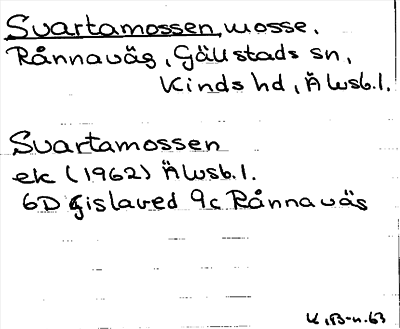 Svartamossen, mosse.
Rånnaväg, Gällstads sn,
Kinds hd, Älvsb.l.
Svartamossen
ek (1962) Älvsb.l.
6D Gislaved 9c Rånnaväg